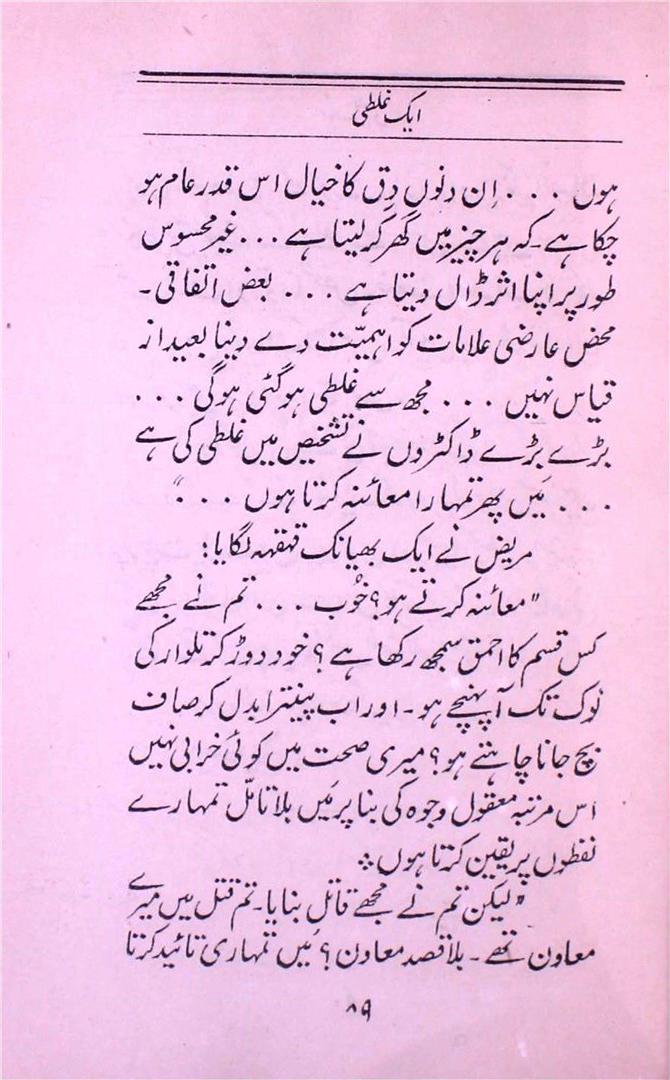 ایک غلطی
ہوں ... اِن دنوں دِق کا خیال اس قدر عام ہو
چکا ہے۔ کہ ہر چیز میں گھر کر لیتا ہے ... غیر محسوس
طور پر اپنا اثر ڈال دیتا ہے ... بعض اتفاقی۔
محض عارضی علامات کو اہمیّت دے دینا بعید از
قیاس نہیں ... مجھ سے غلطی ہو گئی ہو گی ...
بڑے بڑے ڈاکٹروں نے تشخیص میں غلطی کی ہے
... مَیں پھر تمہارا معائنہ کرتا ہوں ...“
مریض نے ایک بھیانک قہقہہ لگایا:
”معائنہ کرتے ہو؟ خُوب ... تم نے مجھے
کس قسم کا احمق سمجھ رکھا ہے؟ خود دوڑ کر تلوار کی
نوک تک آ پہنچے ہو۔ اور اب پینترا بدل کر صاف
بچ جانا چاہتے ہو؟ میری صحت میں کوئی خرابی نہیں
اس مرتبہ معقول وجوہ کی بنا پر مَیں بلا تامّل تمہارے
لفظوں پر یقین کرتا ہوں۔
”لیکن تم نے مجھے قاتل بنایا۔ تم قتل میں میرے
معاون تھے۔ بلا قصد معاون؟ مَیں تمہاری تائید کرتا
۸۹